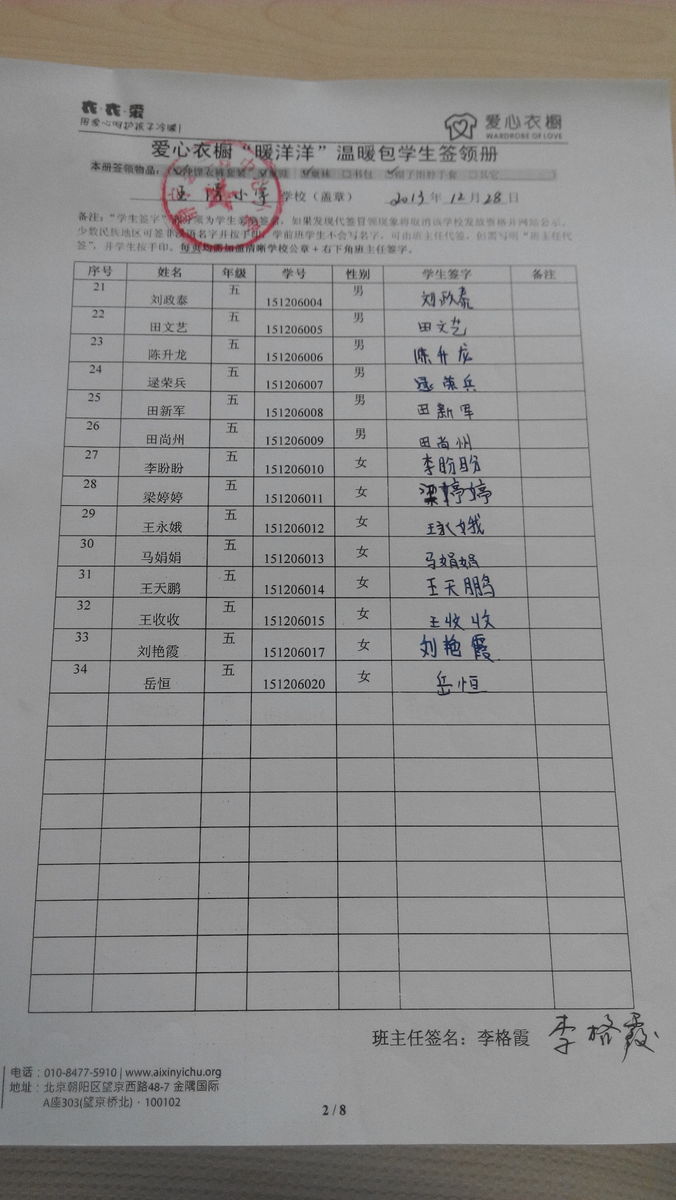 衣·衣·爱
用爱心呵护孩子冷暖!
爱心衣橱
WARDROBE OF LOVE
爱心衣橱“暖洋洋”温暖包学生签领册
本册签领物品:
小学 学校（盖章） 2013年12月28日
备注：“学生签字”
少数民族地区可签
签”，并学生按手印。每页均需加盖清晰学校公章+右下角班主任签字。
序号 姓名 年级 学号 性别 学生签字 备注
21 刘政泰 五 151206004 男 刘政泰
22 田文艺 五 151206005 男 田文艺
23 陈升龙 五 151206006 男 陈升龙
24 逯荣兵 五 151206007 男 逯荣兵
25 田新军 五 151206008 男 田新军
26 田尚州 五 151206009 男 田尚州
27 李盼盼 五 151206010 女 李盼盼
28 梁婷婷 五 151206011 女 梁婷婷
29 王永娥 五 151206012 女 王永娥
30 马娟娟 五 151206013 女 马娟娟
31 王天鹏 五 151206014 女 王天鹏
32 王收收 五 151206015 女 王收收
33 刘艳霞 五 151206017 女 刘艳霞
34 岳恒 五 151206020 女 岳恒
班主任签名：李格霞 李格霞
电话：010-8477-5910 | www.aixinyichu.org
地址：北京朝阳区望京西路48-7 金隅国际
A座303(望京桥北)·100102
2 / 8